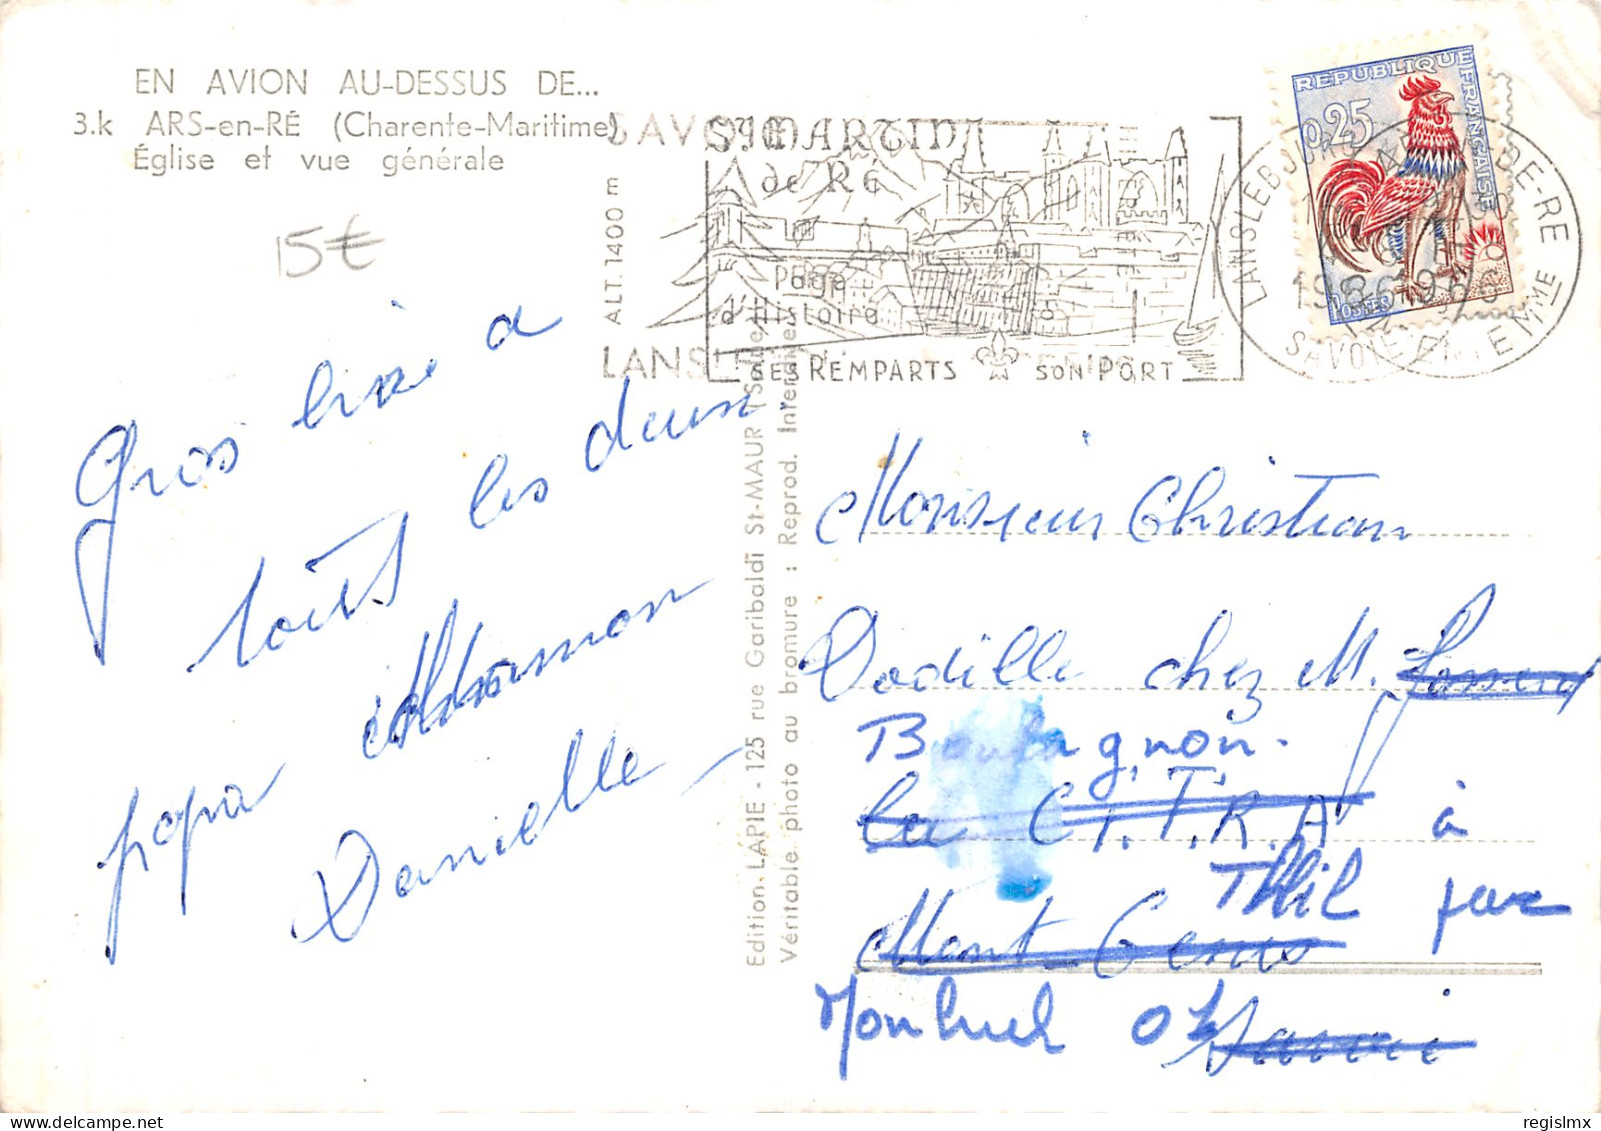 EN AVION AU-DESSUS DE...
3.k ARS-en-RÉ (Charente-Maritime)
Église et vue générale
15€
Gros bisé a
touts les deux.
papa maman
Danielle
Edition LAPIE - 125 rue Garibaldi St-MAUR (Seine)
Véritable photo au bromure : Reprod. Interdite
SAVOIE
ALT. 1400 m
ÉTÉ
St MARTIN
de Ré
Page
d'Histoire
SES REMPARTS SON PORT
LANSLEBOURG
SAVOIE
DE-RE
REPUBLIQUE FRANÇAISE
0,25
POSTES
Monsieur Christian
Dodille chez M.
Boulagnon.
La C.I.T.R.A à
Thil par
Mont Cenis
Monluel 01
Savoie
regislmx